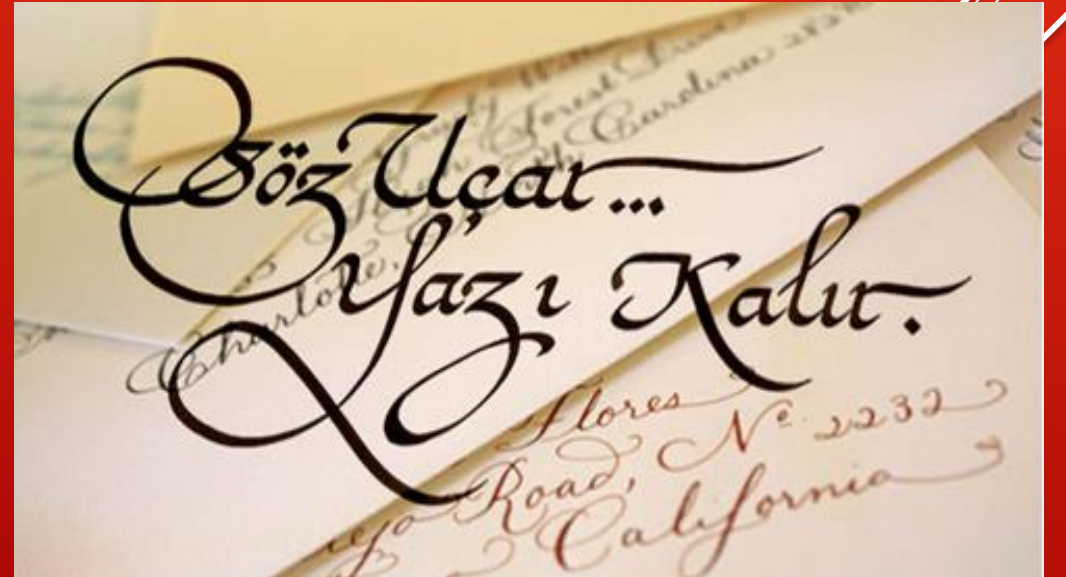 Söz Uçar...
Yazı Kalır.
Forest Drive
Carolina 282
Charlotte,
Flores
Road, Nº 2232
California